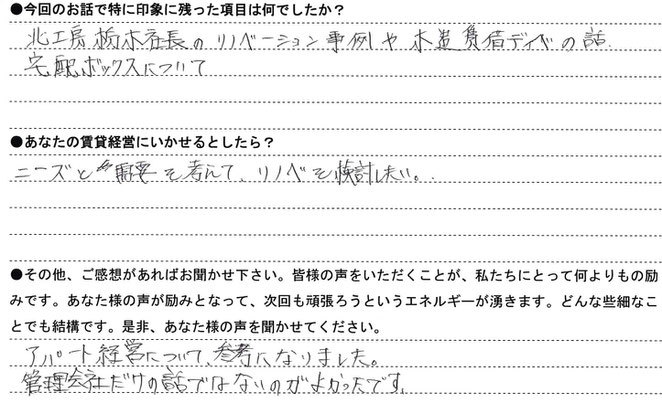 ●今回のお話で特に印象に残った項目は何でしたか？
北工房栃木社長のリノベーション事例や木造賃借ディベの話
宅配ボックスについて
●あなたの賃貸経営にいかせるとしたら？
ニーズと需要を考えて、リノベを検討したい。
●その他、ご感想があればお聞かせ下さい。皆様の声をいただくことが、私たちにとって何よりもの励
みです。あなた様の声が励みとなって、次回も頑張ろうというエネルギーが湧きます。どんな些細なこ
とでも結構です。是非、あなた様の声を聞かせてください。
アパート経営について、参考になりました。
管理会社だけの話ではないのがよかったです。